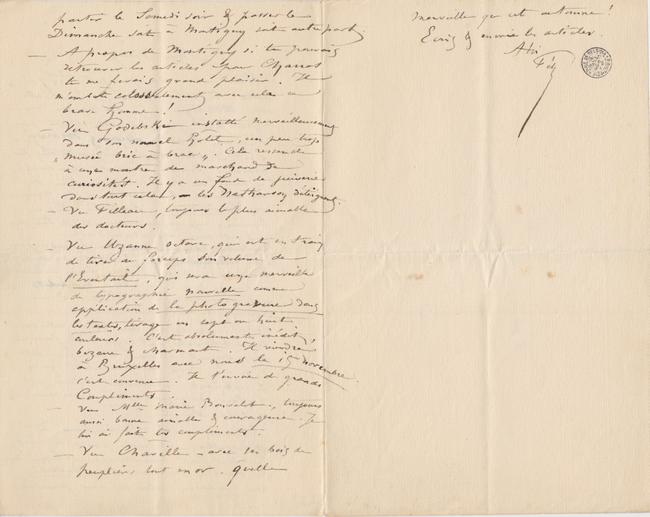 partir le Samedi soir & passer le
Dimanche soit à Martigny soit autre part.
— A propos de Martigny si tu pouvais
retrouver les articles pour Charrot
tu me ferais grand plaisir. Il
m'embête colossalement avec cela ce
brave homme !
— Vu Godebski installé merveilleusement
dans son nouvel hotel, un peu trop
"musée bric à brac". Cela ressemble
à une montre de marchand de
curiosités. Il y a un fond de juiverie
dans tout cela, — les Nathanson déteignent.
— Vu Filleau, toujours le plus aimable
des docteurs.
— Vu Uzanne octave, qui est en train
de tirer au forceps son volume de
l'Eventail, qui sera une merveille
de typographie nouvelle comme
application de la photogravure dans
les textes, tirage en sept ou huit
couleurs. C'est absolument inédit,
bizarre & charmant. Il viendra
à Bruxelles avec nous le 15 novembre.
c'est convenu. Il t'envoie de grands
Compliments.
— Vu Mlle Marie toujours
aussi bonne aimable & courageuse. Je
lui ai fait tes compliments.
— Vu Chaville — avec ses bois de
peupliers tout en or. quelle
merveille que cet automne !
Ecris & envoie les articles.
A toi
Fély